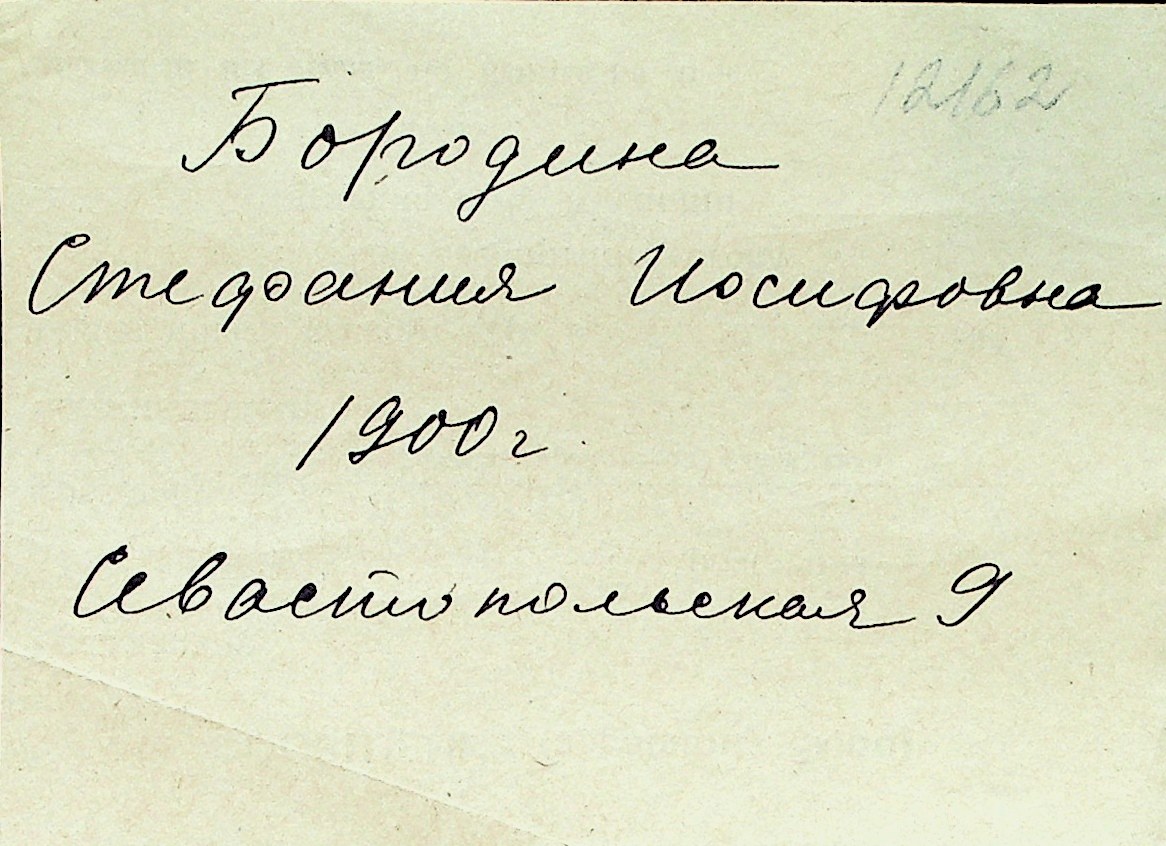 12162
Бородина
Стефания Иосифовна
1900 г
Севастопольская 9